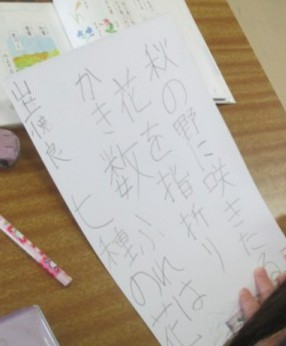 秋の野に咲きたる
花を指折り
かき数ふれは
七種の花
山上憶良